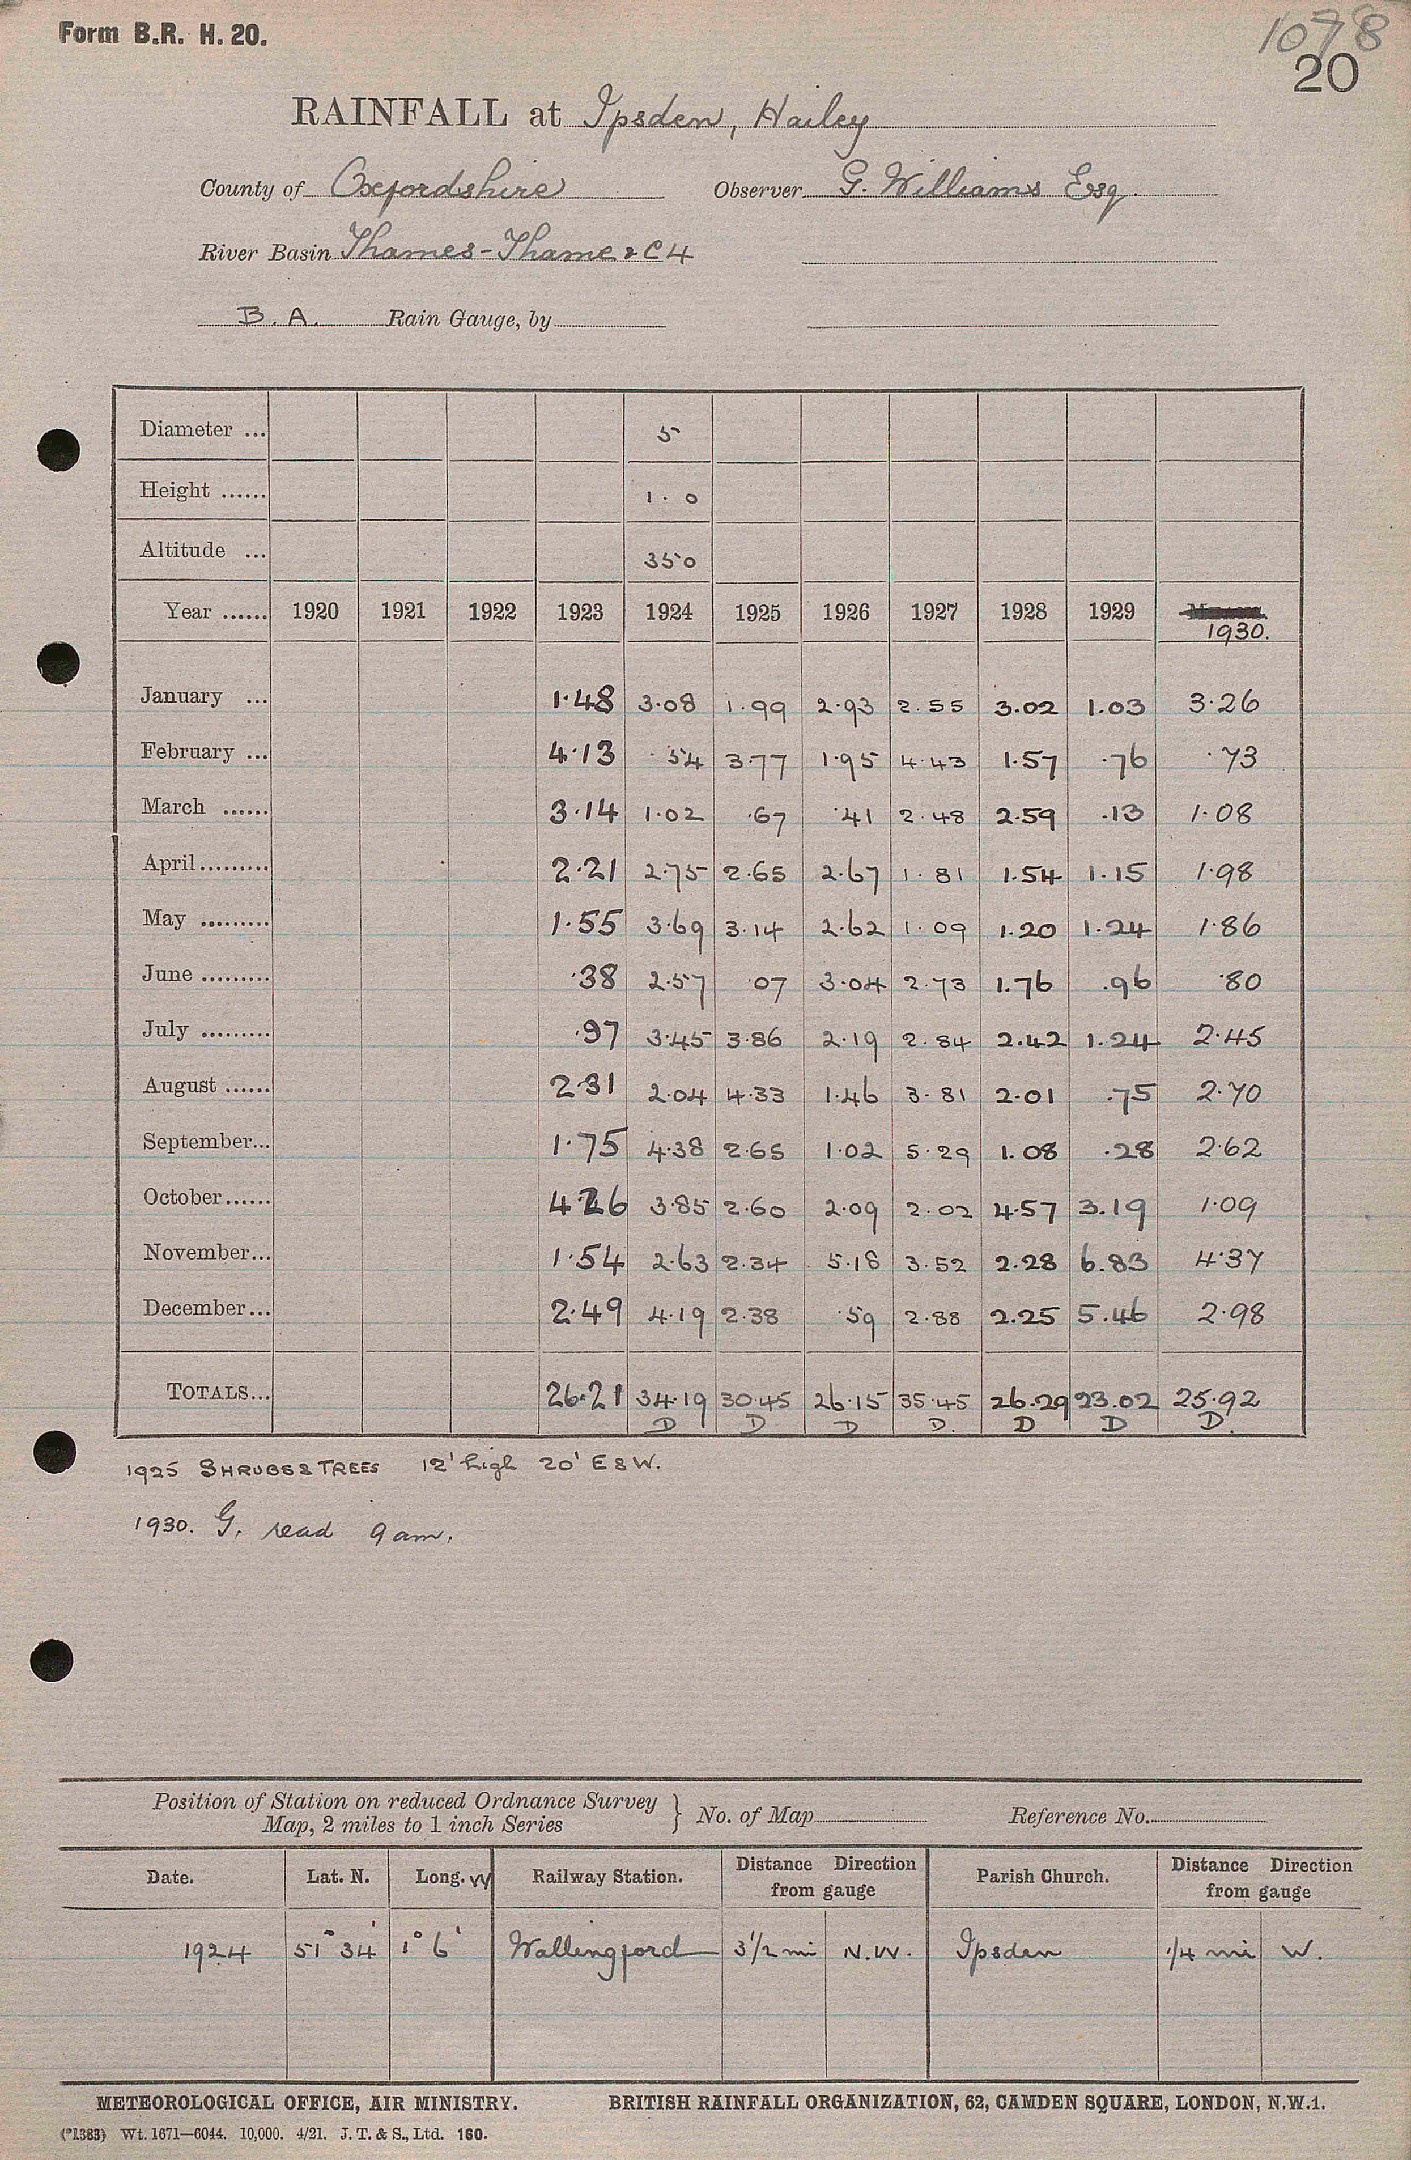 Form B.R. H. 20.
1078
20
RAINFALL at Ipsden, Hailey
County of Oxfordshire Observer G. Williams Esq.
River Basin Thames-Thame & C4
B.A. Rain Gauge, by
Diameter ... 5
Height ...... 1.0
Altitude ... 350
Year ...... 1920 1921 1922 1923 1924 1925 1926 1927 1928 1929 1930.
January ... 1.48 3.08 1.99 2.93 2.55 3.02 1.03 3.26
February ... 4.13 .54 3.77 1.95 4.43 1.57 .76 .73
March ...... 3.14 1.02 .67 .41 2.48 2.59 .13 1.08
April ......... 2.21 2.75 2.65 2.67 1.81 1.54 1.15 1.98
May ......... 1.55 3.69 3.14 2.62 1.09 1.20 1.24 1.86
June ......... .38 2.57 .07 3.04 2.73 1.76 .96 .80
July ......... .97 3.45 3.86 2.19 2.84 2.42 1.24 2.45
August ...... 2.31 2.04 4.33 1.46 3.81 2.01 .75 2.70
September... 1.75 4.38 2.65 1.02 5.29 1.08 .28 2.62
October...... 4.26 3.85 2.60 2.09 2.02 4.57 3.19 1.09
November... 1.54 2.63 2.34 5.18 3.52 2.28 6.83 4.37
December... 2.49 4.19 2.38 .59 2.88 2.25 5.46 2.98
TOTALS... 26.21 34.19 30.45 26.15 35.45 26.29 23.02 25.92
D D D D. D D D.
1925 SHRUBS & TREES 12' high 20' E & W.
1930. G. read 9 am.
Position of Station on reduced Ordnance Survey
Map, 2 miles to 1 inch Series } No. of Map Reference No.
Date. Lat. N. Long. W Railway Station. Distance Direction from gauge Parish Church. Distance Direction from gauge
1924 51° 34' 1° 6' Wallingford 3 1/2 mi N.W. Ipsden 1/4 mi W.
METEOROLOGICAL OFFICE, AIR MINISTRY. BRITISH RAINFALL ORGANIZATION, 62, CAMDEN SQUARE, LONDON, N.W.1.
(*1383) Wt. 1671—6044. 10,000. 4/21. J. T. & S., Ltd. 160.